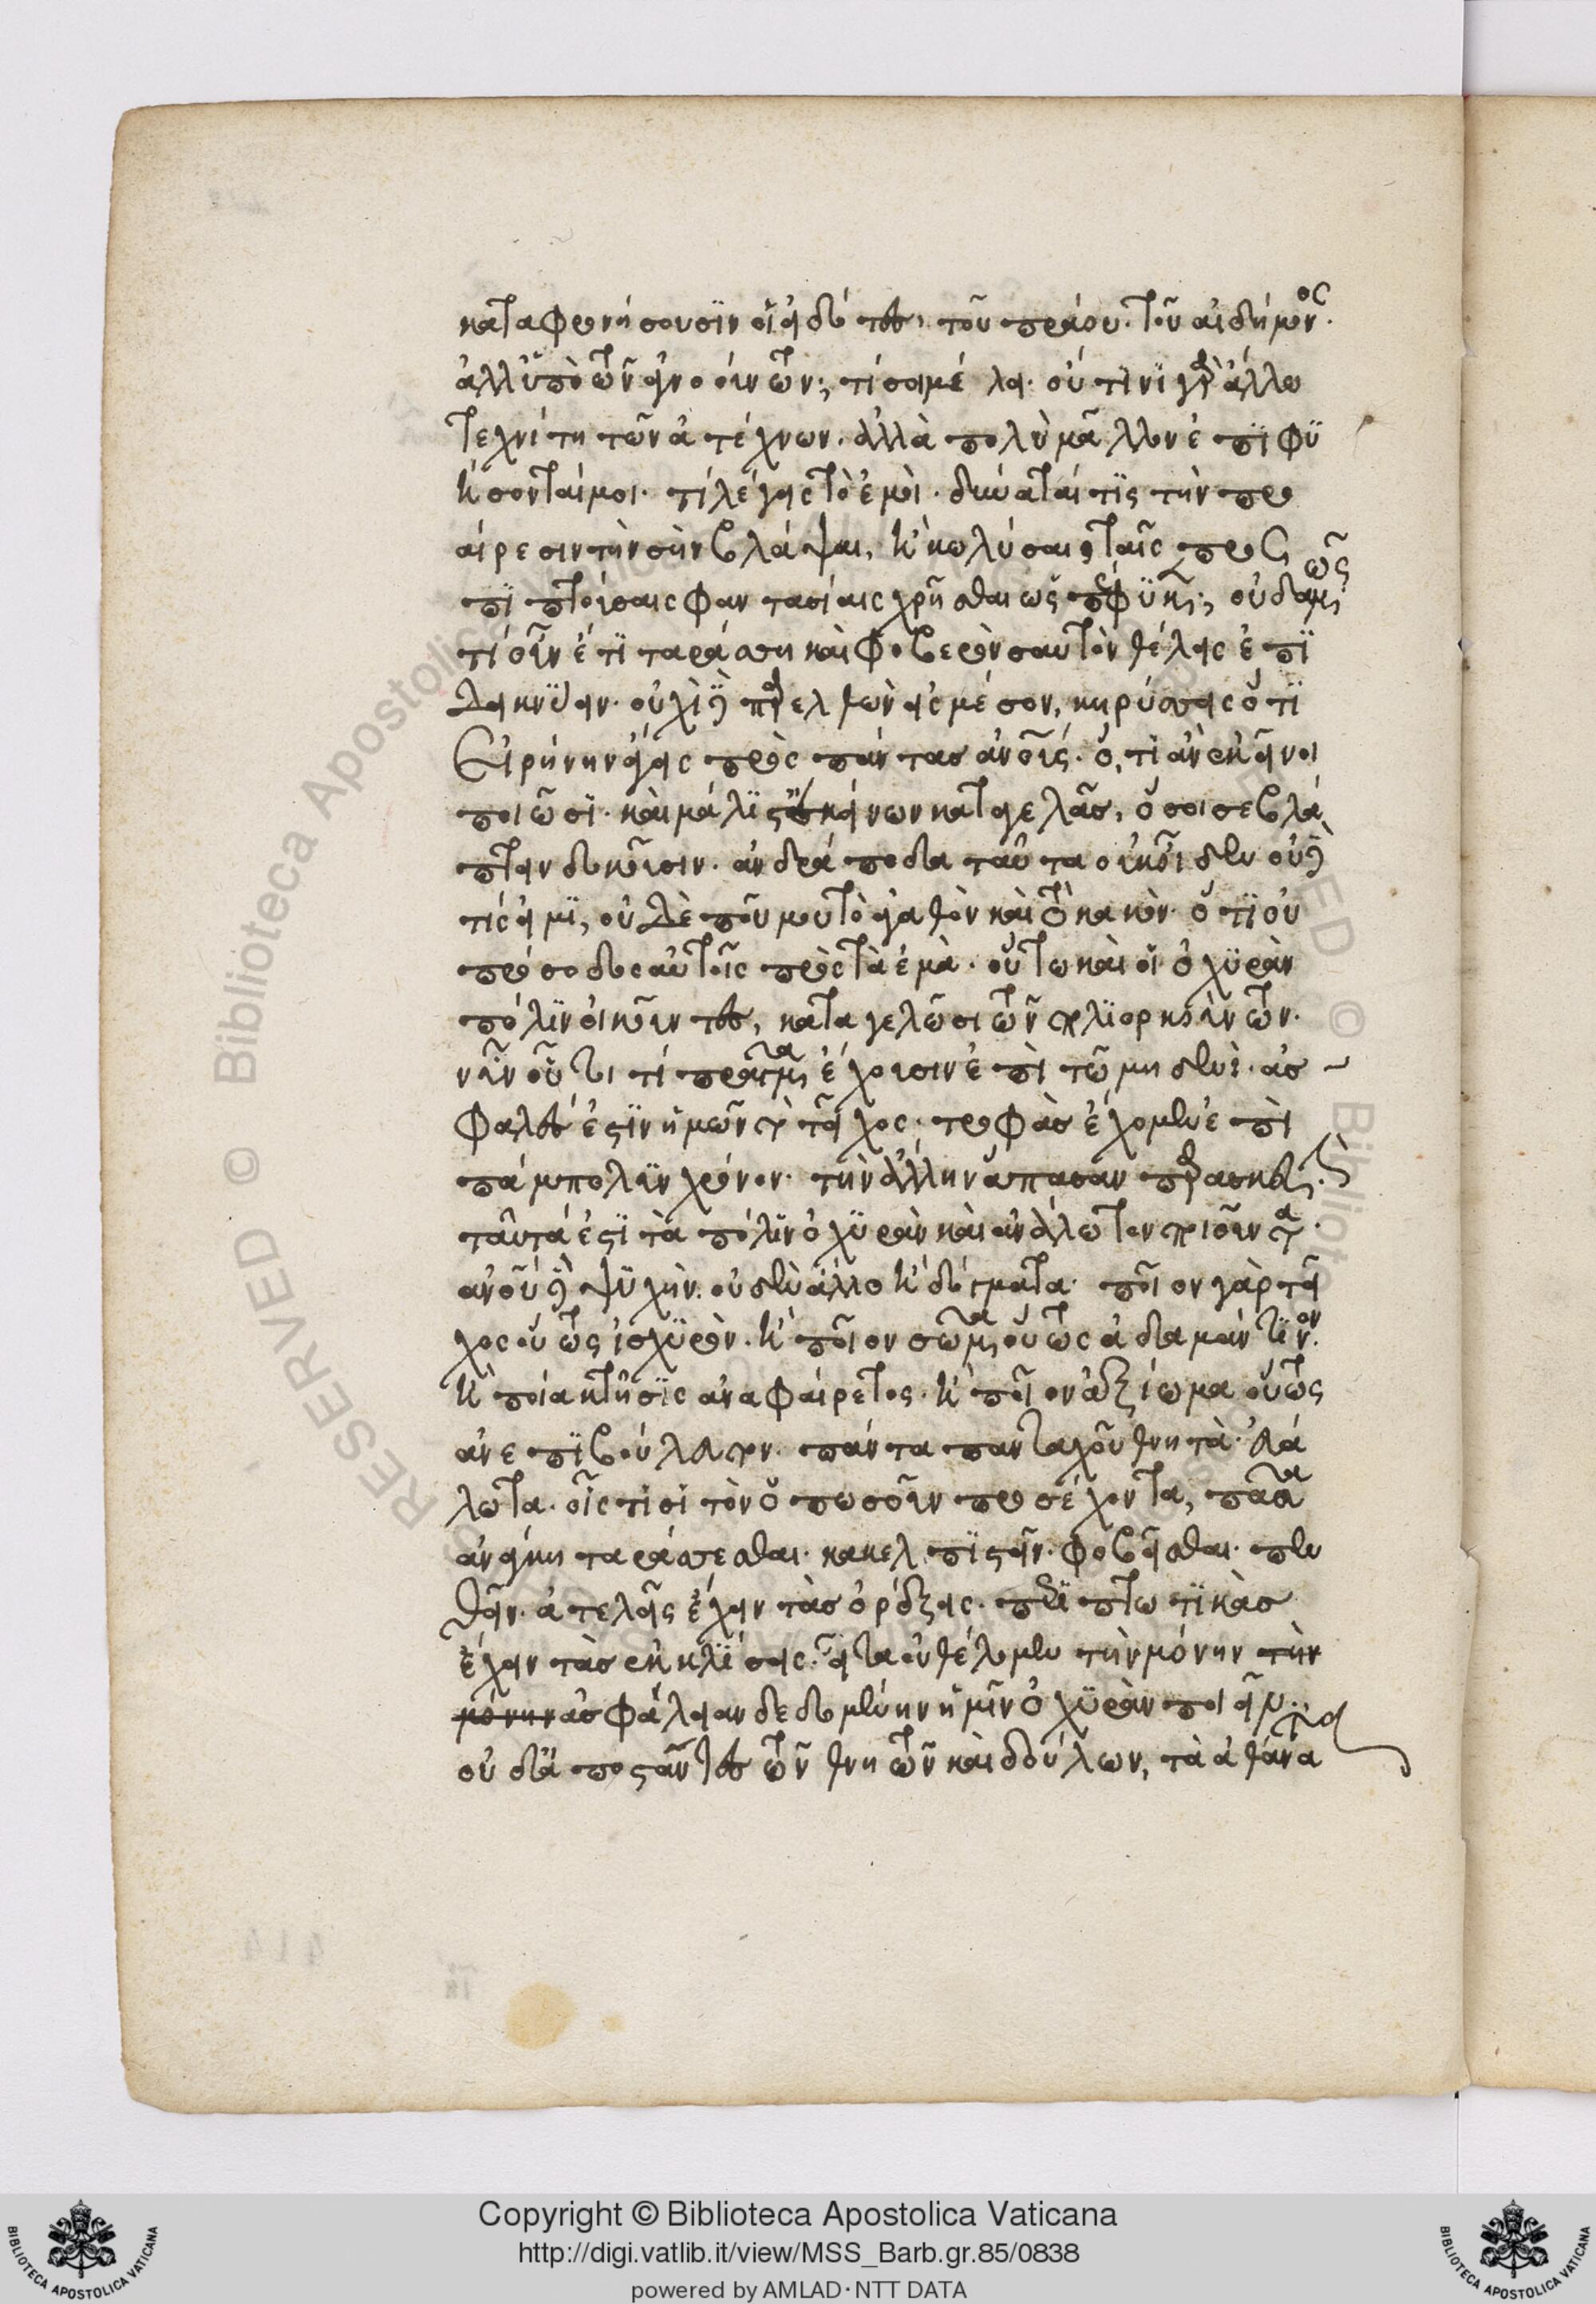 καταφρονήσουσιν οἱ εἰδότες. τοῦ πράου. τοῦ αἰδήμονος.
ἀλλ' ὑπὸ τῶν ἀγνοούντων; τί σοι μέλει. οὔτινι γὰρ ἄλλω
τεχνίτη τῶν ἀτέχνων. ἀλλὰ πολὺ μᾶλλον ἐπιφυ
ήσονταί μοι. τί λέγεις τὸ ἐμοί. δύναταί τις τὴν προ
αίρεσιν τὴν σὴν βλάψαι, ἢ κωλύσαι ταῖς προσ
πιπτούσαις φαντασίαις χρῆσθαι ὡς πέφυκε; οὐδαμῶς
τί οὖν ἔτι ταράσση καὶ φοβερὸν σαυτὸν θέλεις ἐπι
δεικνύειν. οὐχὶ δὲ παρελθὼν εἰς μέσον, κηρύσσεις ὅτι
εἰρήνην ἄγεις πρὸς πάντας ἀνθρώπους. ὅ,τι ἂν ἐκεῖνοι
ποιῶσι. καὶ μάλιστα ἐκείνων καταγελᾶς, ὅσοι σε βλά
πτειν δοκοῦσιν. ἀνδράποδα ταῦτα οὐκ οἶδεν οὔτε
τίς εἰμι, οὐδὲ ποῦ μου τὸ ἀγαθὸν καὶ τὸ κακὸν. ὅτι οὐ
πρόσοδος αὐτοῖς πρὸς τὰ ἐμὰ. οὕτω καὶ οἱ ὀχυρὰν
πόλιν οἰκοῦντες, καταγελῶσι τῶν πολιορκούντων.
νῦν οὗτοι τί πρᾶγμα ἔχουσιν ἐπὶ τῶ μηδενί. ἀσ
φαλές ἐστιν ἡμῶν τὸ τεῖχος. τροφὰς ἔχομεν ἐπὶ
πάμπολυν χρόνον. τὴν ἄλλην ἅπασαν παρασκευήν.
ταῦτά ἐστι τὰ πόλιν ὀχυρὰν καὶ ἀνάλωτον ποιοῦντα.
ἀνθρώπου δὲ ψυχὴν. οὐδὲν ἄλλο ἢ δόγματα. ποῖον γὰρ τεῖ
χος οὕτως ἰσχυρὸν. ἢ ποῖον σῶμα οὕτως ἀδαμάντινον.
ἢ ποία κτῆσις ἀναφαίρετος. ἢ ποῖον ἀξίωμα οὕτως
ἀνεπιβούλευτον. πάντα πανταχοῦ θνητὰ. εὐά
λωτα. οἷς τισι τὸν ὁπωσοῦν προσέχοντα, πᾶσα
ἀνάγκη ταράσσεσθαι. κακελπιστεῖν. φοβεῖσθαι. πεν
θεῖν. ἀτελεῖς ἔχειν τὰς ὀρέξεις. περιπτωτικὰς
ἔχειν τὰς ἐκκλίσεις. εἶτα οὐ θέλομεν τὴν μόνην τὴν
μόνην ἀσφάλειαν δεδομένην ἡμῖν ὀχυρὰν ποιεῖν.
οὐδ' ἀποστάντες τῶν θνητῶν καὶ δούλων, τὰ ἀθάνατα
Copyright © Biblioteca Apostolica Vaticana
http://digi.vatlib.it/view/MSS_Barb.gr.85/0838
powered by AMLAD·NTT DATA